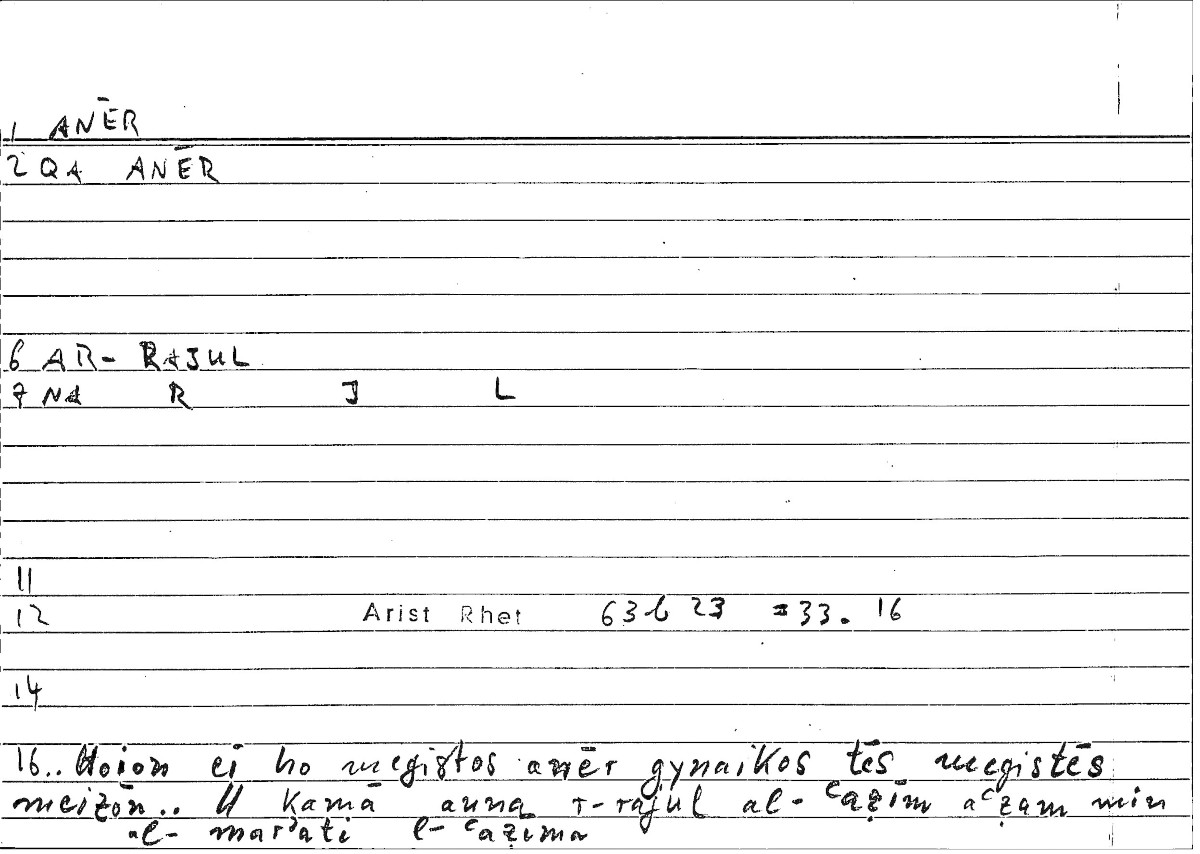 1 ANĒR
2 QA ANĒR
6 AR- RAJUL
7 NA R J L
11
12 Arist Rhet 63b 23 =33. 16
14
16.. Hoion ei ho megistos anēr gynaikos tēs megistēs
meizōn.. // Kamā anna r-rajul al-ʿaẓīm aʿẓam min
al-marʾati l-ʿaẓīma